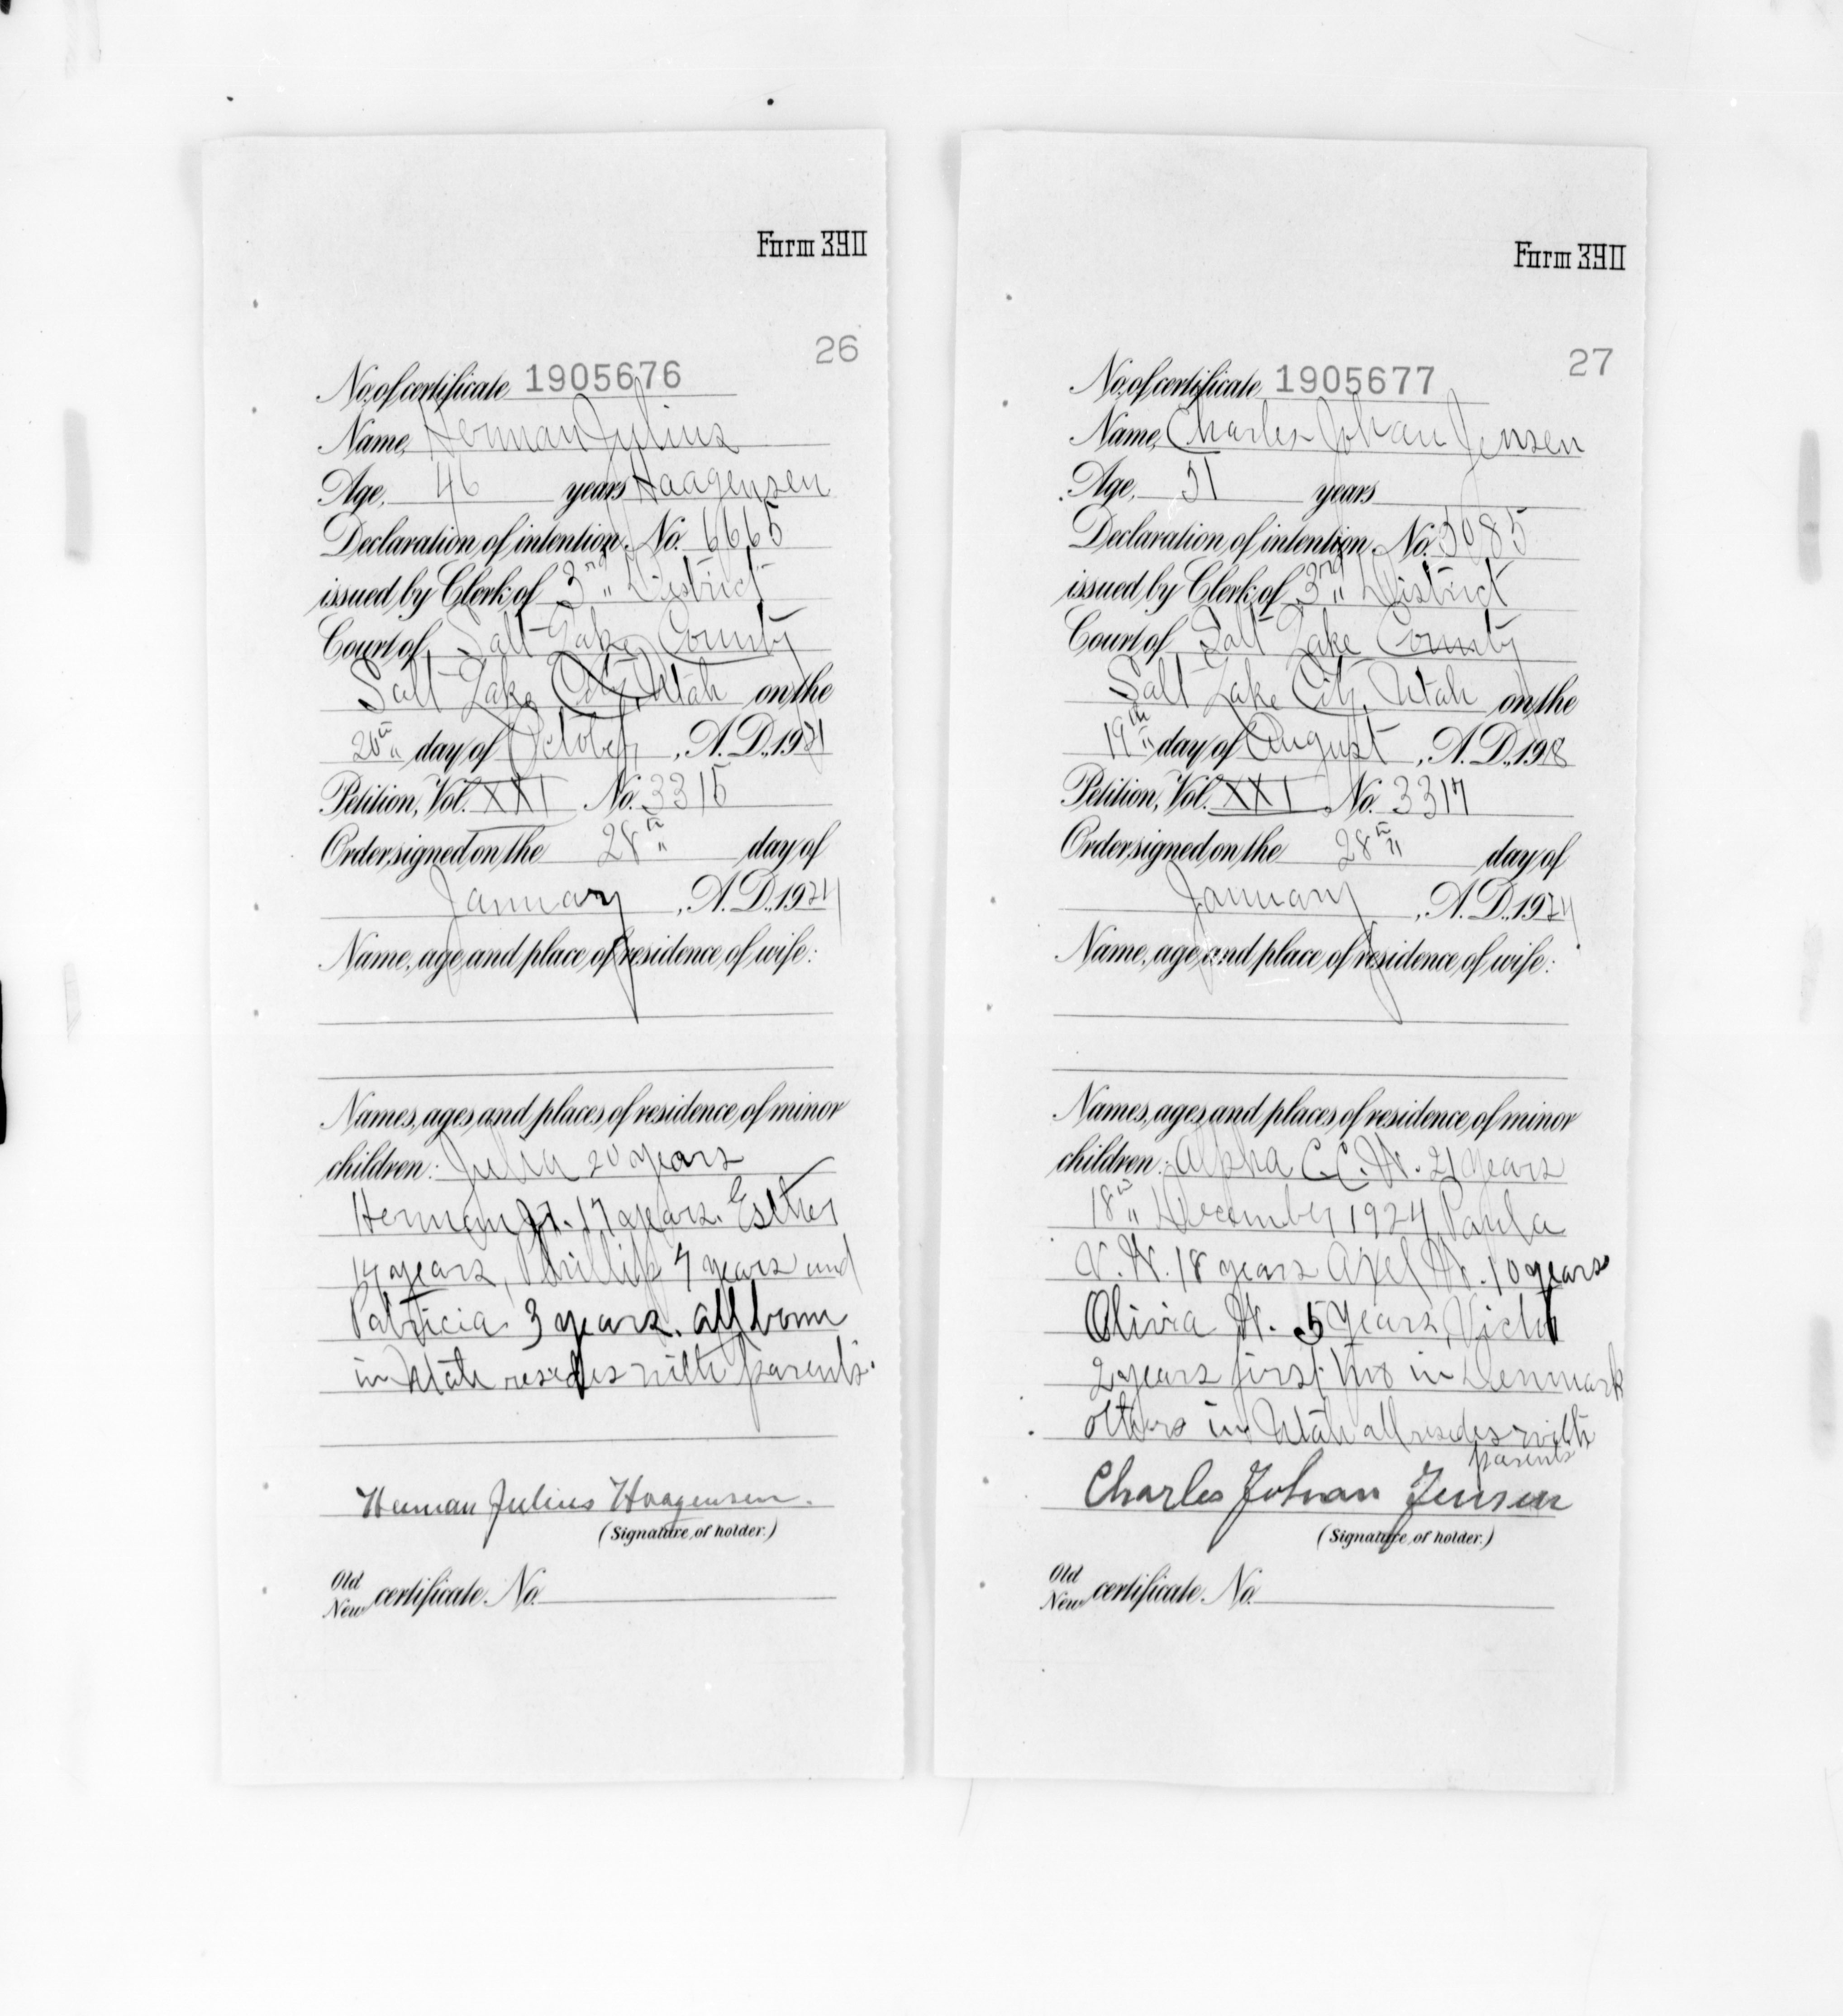 Form 390
26
No. of certificate 1905676
Name, Herman Julius
Age, 46 years Haagensen
Declaration of intention, No. 6665
issued by Clerk of 3rd District
Court of Salt Lake County
Salt Lake City, Utah on the
20th day of October, A. D., 1921
Petition, Vol. XXI No. 3315
Order signed on the 28th day of
January, A. D., 1924
Name, age, and place of residence, of wife:
Names, ages, and places of residence of minor
children: Julia 20 years
Herman Jr. 17 years. Esther
14 years, Phillip 7 years and
Patricia 3 years. all born
in Utah resides with parents.
Herman Julius Haagensen.
(Signature, of holder.)
Old
New certificate. No.
Form 390
27
No. of certificate 1905677
Name, Charles Johan Jensen
Age, 51 years
Declaration of intention, No. 5085
issued by Clerk of 3rd District
Court of Salt Lake County
Salt Lake City, Utah on the
19th day of August, A. D., 1918
Petition, Vol. XXI No. 3317
Order signed on the 28th day of
January, A. D., 1924
Name, age, and place of residence, of wife:
Names, ages, and places of residence of minor
children: Alpha C.C.W. 21 years
18th December 1924 Paula
V.W. 18 years Axel W. 10 years
Olivia W. 5 years, Victor
2 years first two in Denmark
others in Utah all resides with
parents
Charles Johan Jensen
(Signature, of holder.)
Old
New certificate. No.